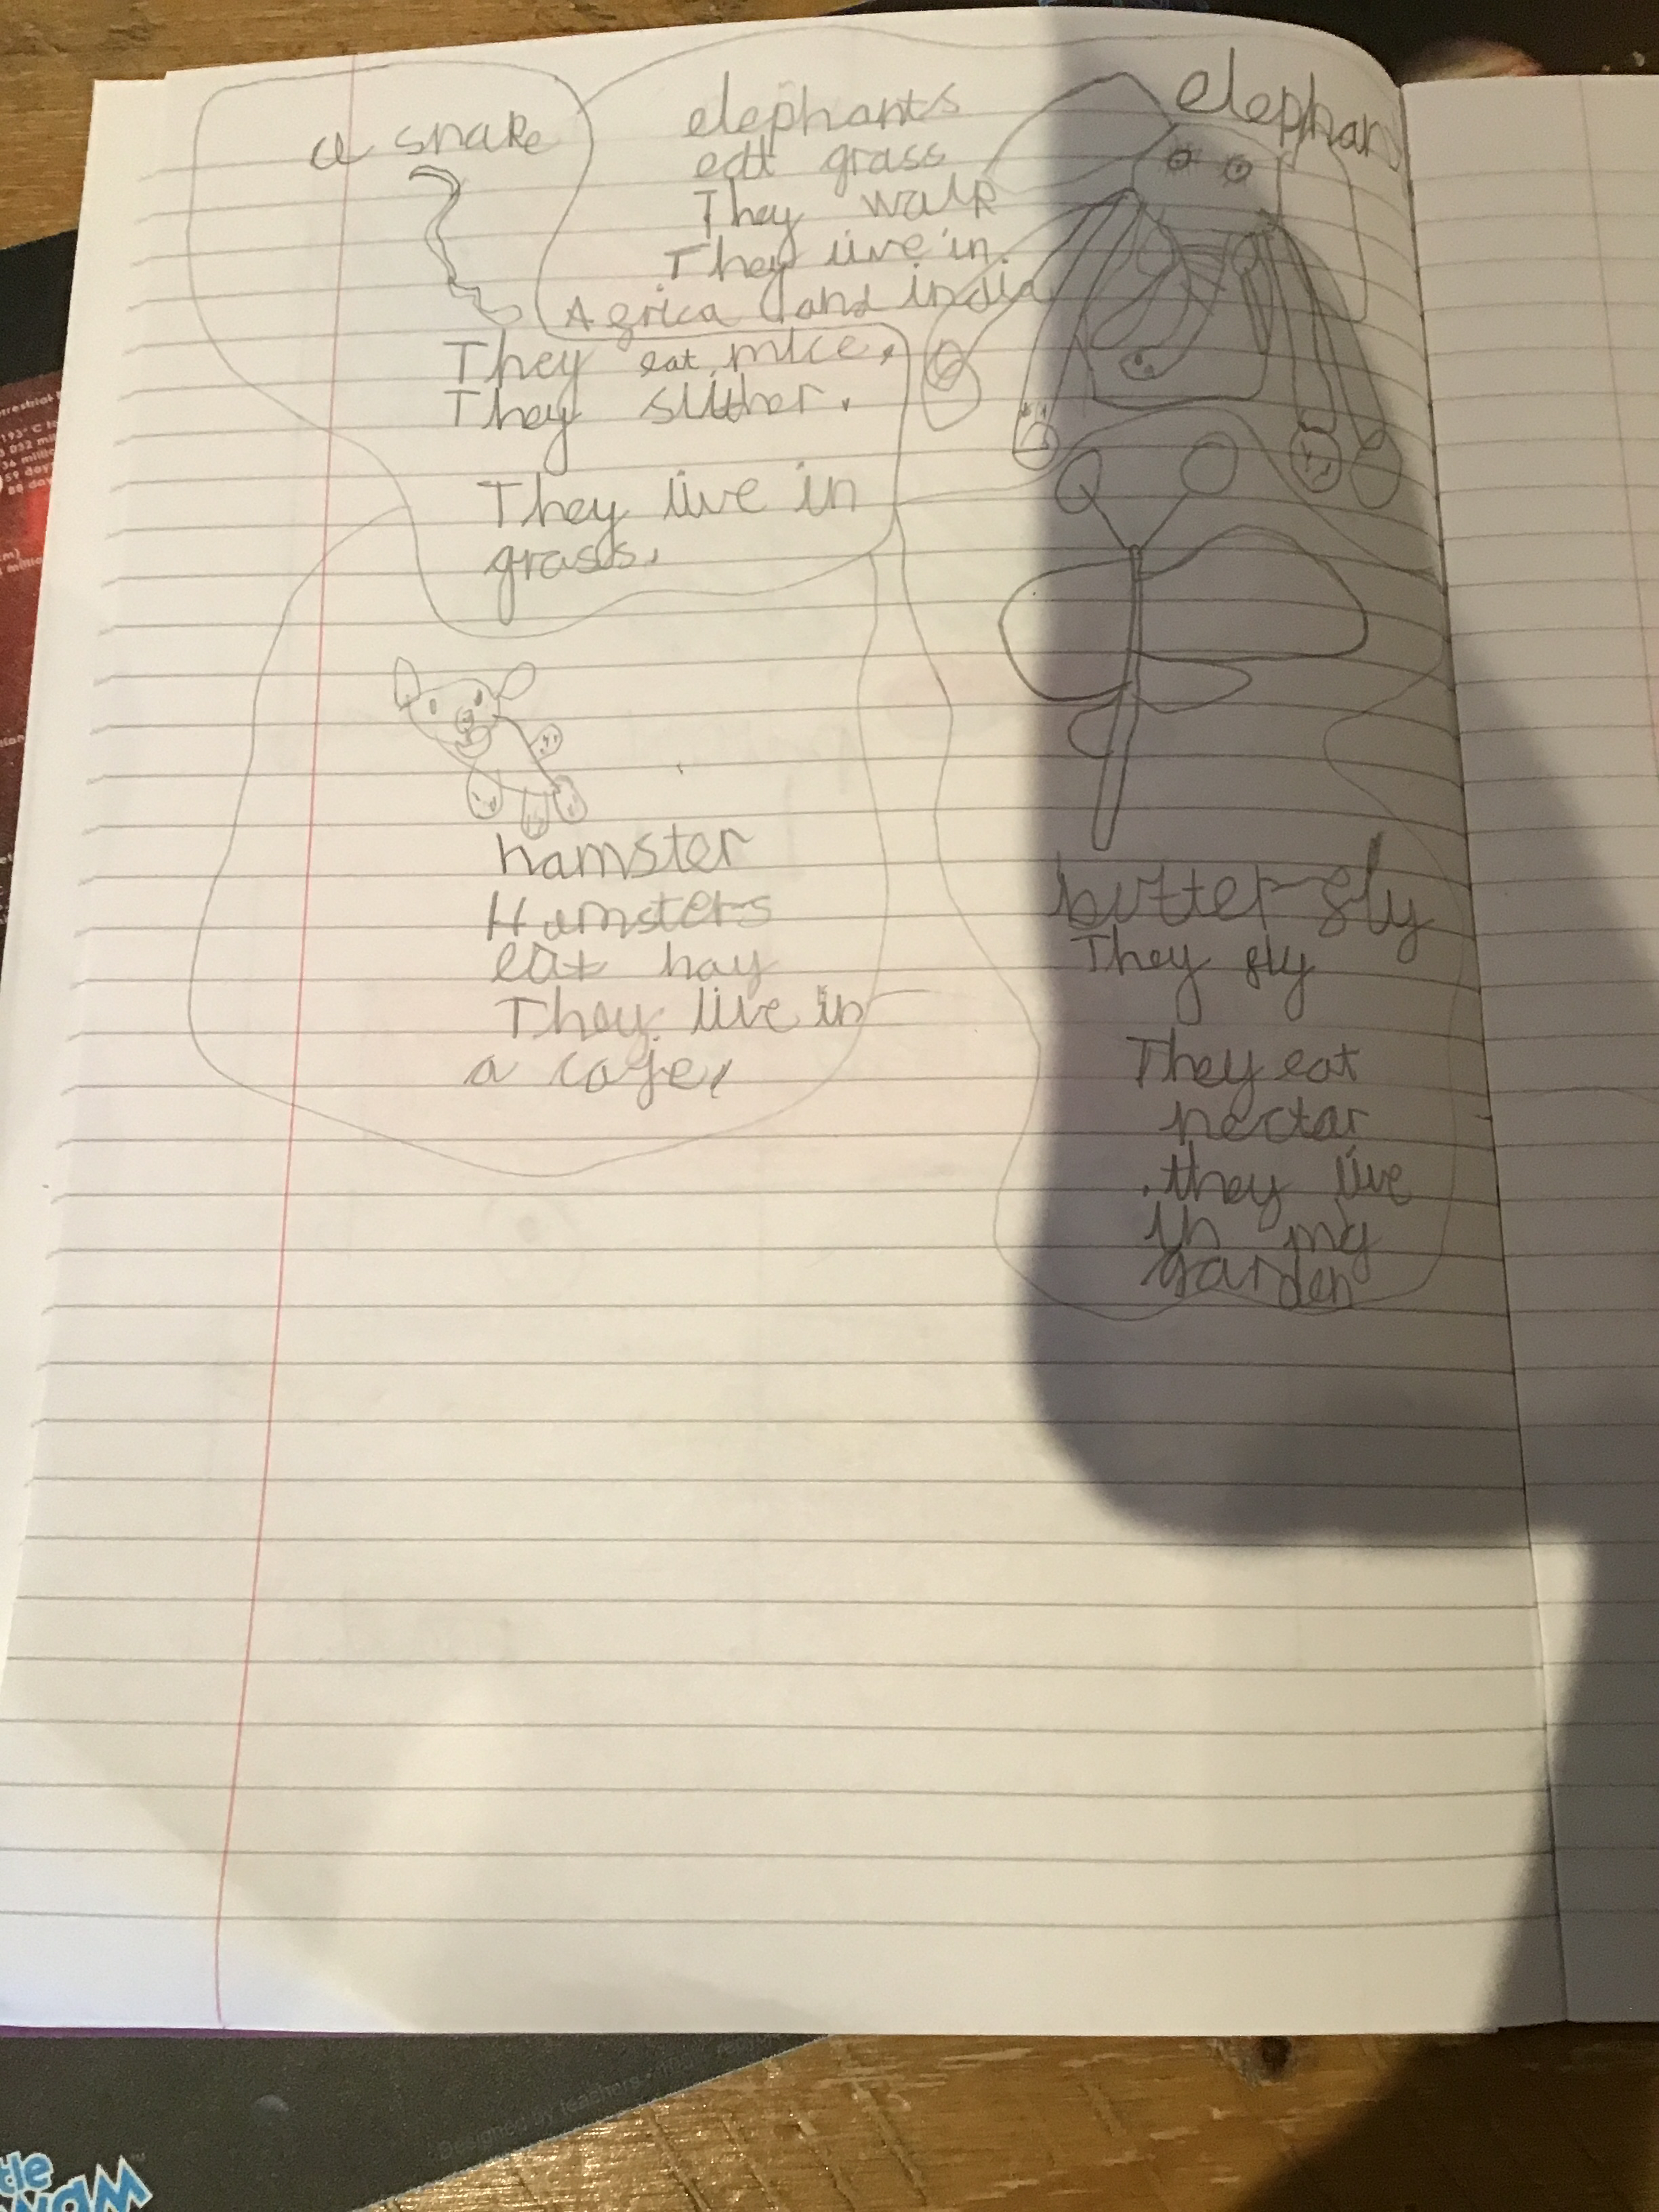 a snake
They eat mice.
They slither.
They live in
grass.
elephants
eat grass
They walk
They live in
Africa and india
elephan
hamster
Hamsters
eat hay
They live in
a cage.
butterfly
They fly
They eat
nectar
. they live
in my
garden
193° C to
59 day
88 day
Designed by teachers